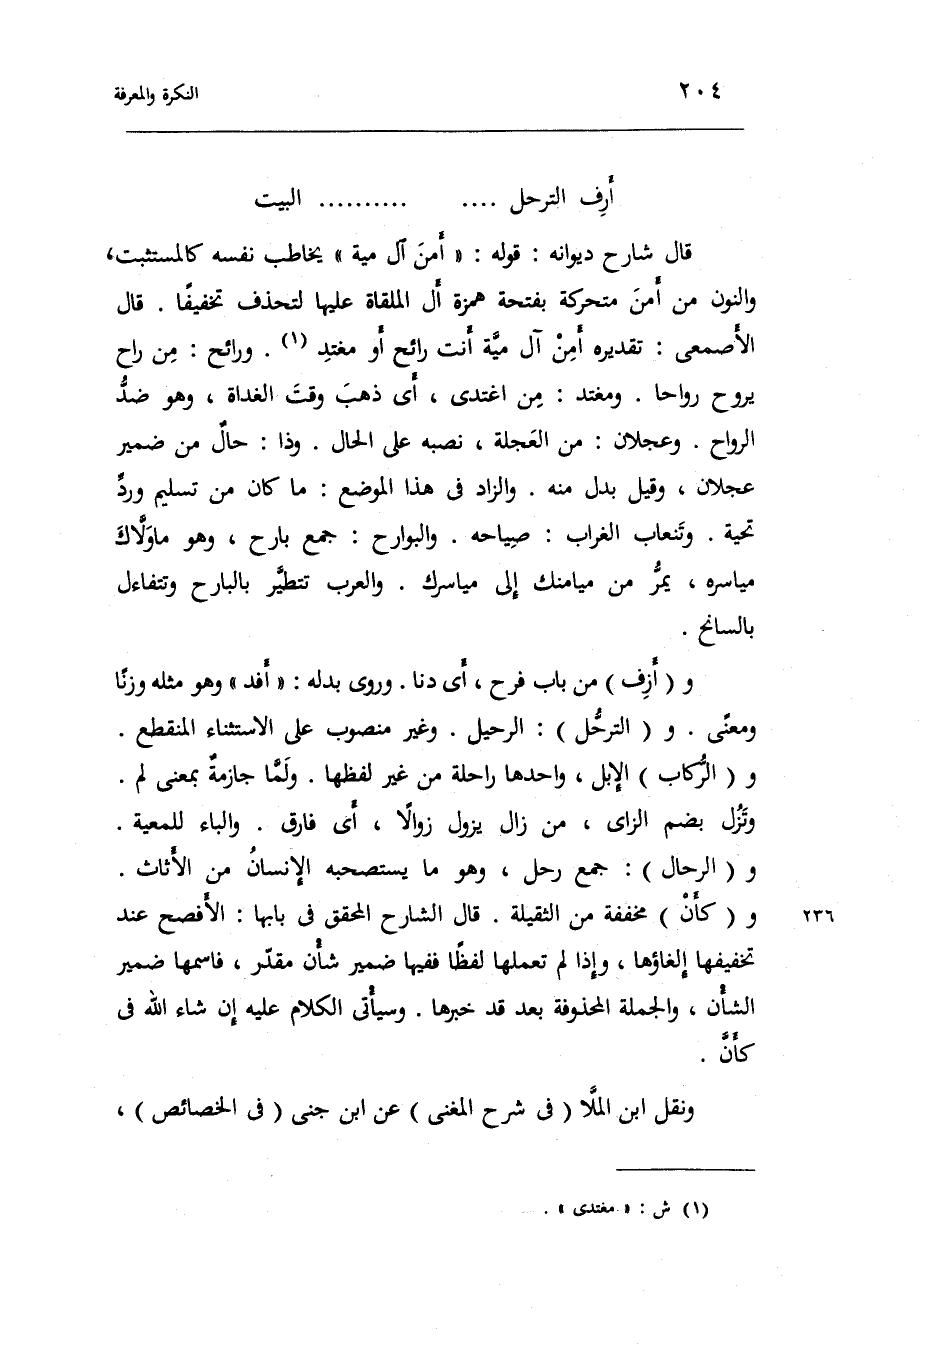 ٢٠٤
النكرة والمعرفة
أَرِف الترحل .... .......... البيت
قال شارح ديوانه : قوله : « أَمنَ آل مية » يخاطب نفسه كالمستثبت،
والنون من أَمنَ متحركة بفتحة همزة أَل الملقاة عليها لتحذف تخفيفًا . قال
الأَصمعى : تقديره أَمِنْ آل ميَّة أَنت رائح أَو مغتدِ (١) . ورائح : مِن راح
يروح رواحا . ومغتد : مِن اغتدى ، أَى ذهبَ وقتَ الغداة ، وهو ضدُّ
الرواح . وعجلان : من العَجلة ، نصبه على الحال . وذا : حالٌ من ضمير
عجلان ، وقيل بدل منه . والزاد فى هذا الموضع : ما كان من تسليم وردِّ
تحية . وتَنعاب الغراب : صِياحه . والبوارح : جمع بارح ، وهو ماوَلَّاكَ
مياسره ، يمرُّ من ميامنك إلى مياسرك . والعرب تتطيَّر بالبارح وتتفاءل
بالسانح .
و ( أَزِف ) من باب فرح ، أَى دنا . وروى بدله : « أَفد » وهو مثله وزنًا
ومعنًى . و ( الترحُّل ) : الرحيل . وغير منصوب على الاستثناء المنقطع .
و ( الرُّكاب ) الإبل ، واحدها راحلة من غير لفظها . ولَمَّا جازمةٌ بمعنى لم .
وتَزُل بضم الزاى ، من زال يزول زوالًا ، أَى فارق . والباء للمعية .
و ( الرحال ) : جمع رحل ، وهو ما يستصحبه الإنسانُ من الأَثاث .
و ( كأَنْ ) مخففة من الثقيلة . قال الشارح المحقق فى بابها : الأَفصح عند
٢٣٦
تخفيفها إلغاؤها ، وإذا لم تعملها لفظًا ففيها ضمير شأْن مقدّر ، فاسمها ضمير
الشأْن ، والجملة المحذوفة بعد قد خبرها . وسيأْتى الكلام عليه إن شاء الله فى
كأَنَّ .
ونقل ابن الملَّا ( فى شرح المغنى ) عن ابن جنى ( فى الخصائص ) ،
(١) ش : « مغتدى » .